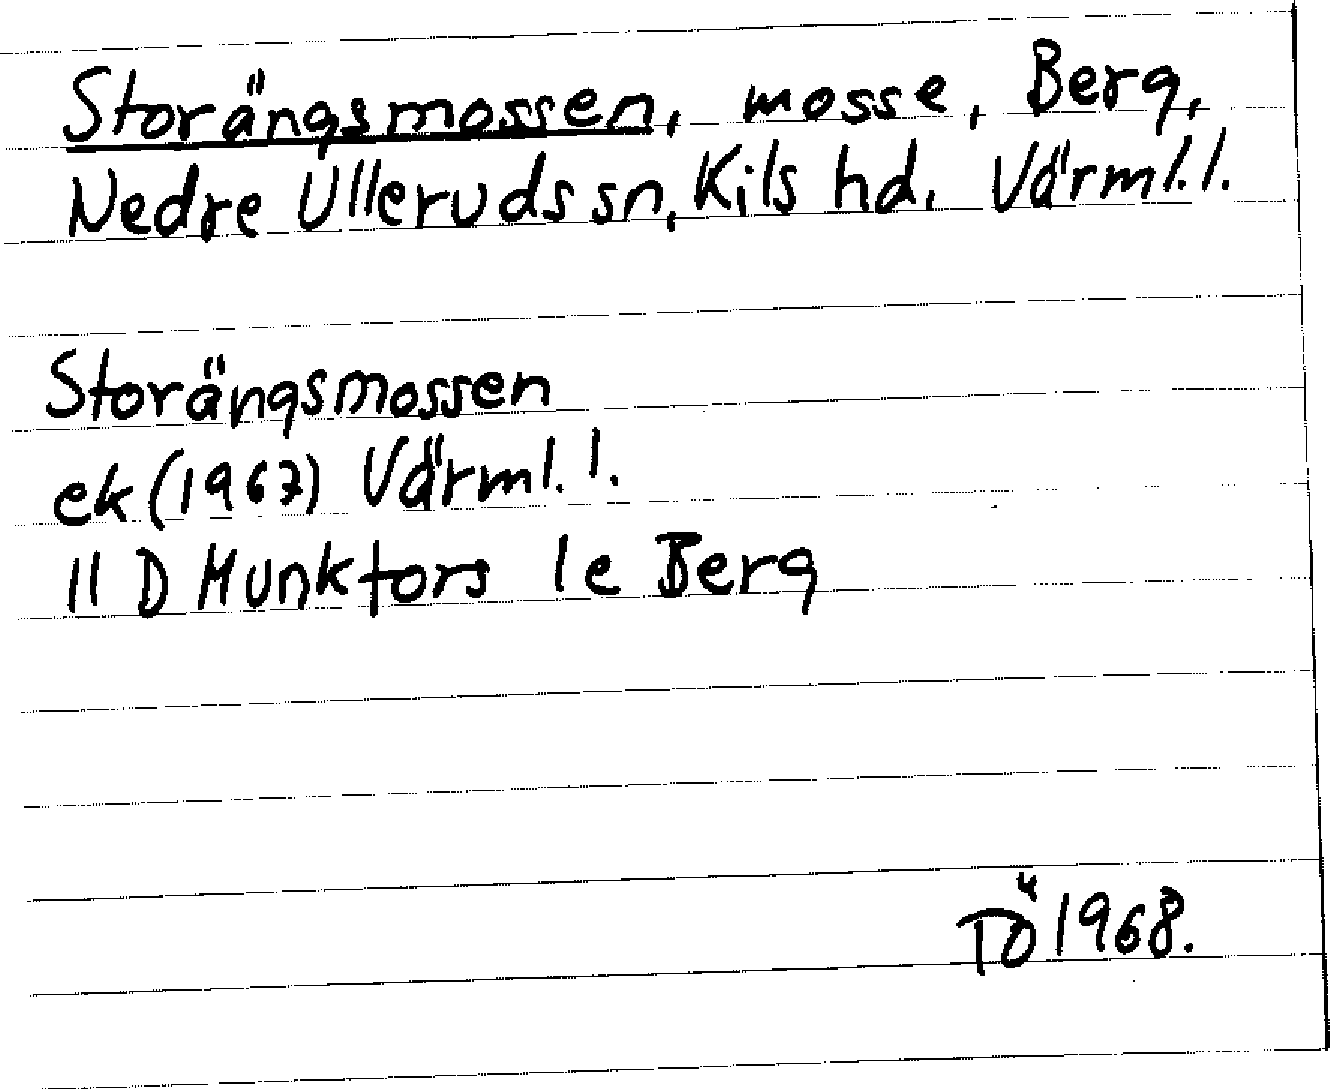 Storängsmossen, mosse, Berg,
Nedre Ullerudssn, Kils hd, Värml. l.
Storängsmossen
ek (1967) Värml. l.
11 D Munkfors 1e Berg
TÖ 1968.